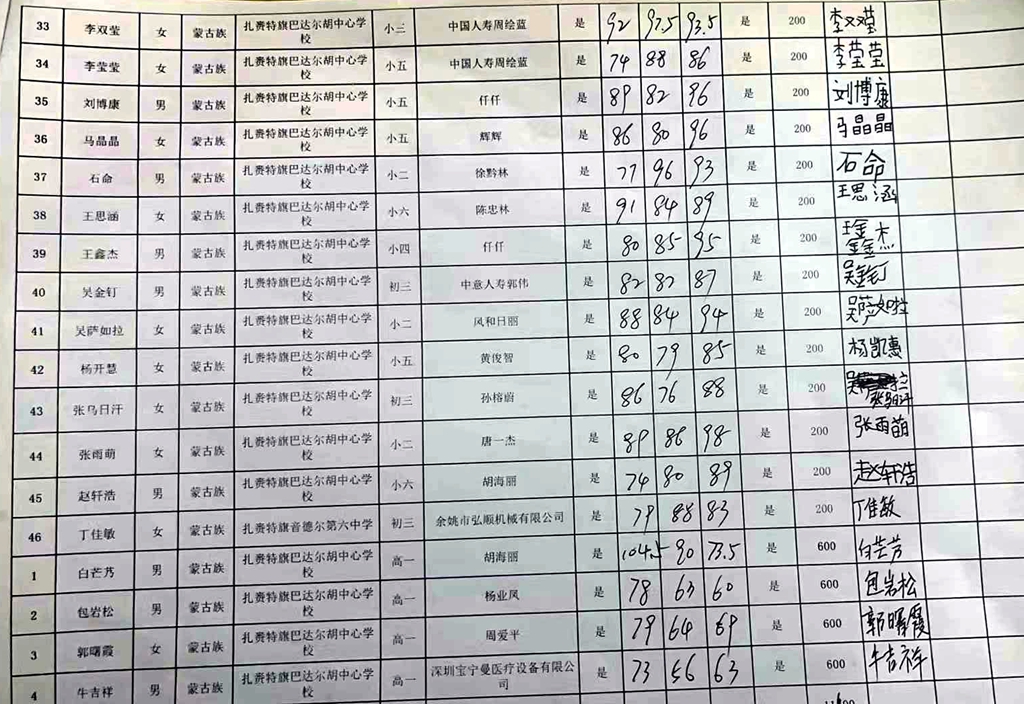 33 李双莹 女 蒙古族 扎赉特旗巴达尔胡中心学校 小三 中国人寿周绘蓝 是 92 97.5 93.5 是 200 李双莹
34 李莹莹 女 蒙古族 扎赉特旗巴达尔胡中心学校 小五 中国人寿周绘蓝 是 74 88 86 是 200 李莹莹
35 刘博康 男 蒙古族 扎赉特旗巴达尔胡中心学校 小五 仟仟 是 89 82 96 是 200 刘博康
36 马晶晶 女 蒙古族 扎赉特旗巴达尔胡中心学校 小五 辉辉 是 86 80 96 是 200 马晶晶
37 石命 男 蒙古族 扎赉特旗巴达尔胡中心学校 小二 徐黔林 是 77 96 93 是 200 石命
38 王思涵 女 蒙古族 扎赉特旗巴达尔胡中心学校 小六 陈忠林 是 91 84 89 是 200 王思涵
39 王鑫杰 男 蒙古族 扎赉特旗巴达尔胡中心学校 小四 仟仟 是 80 85 95 是 200 王鑫杰
40 吴金钉 男 蒙古族 扎赉特旗巴达尔胡中心学校 初三 中意人寿郭伟 是 82 82 87 是 200 吴金钉
41 吴萨如拉 女 蒙古族 扎赉特旗巴达尔胡中心学校 小二 风和日丽 是 88 84 94 是 200 吴萨如拉
42 杨开慧 女 蒙古族 扎赉特旗巴达尔胡中心学校 小五 黄俊智 是 80 79 85 是 200 杨凯惠
43 张乌日汗 女 蒙古族 扎赉特旗巴达尔胡中心学校 初三 孙榕蔚 是 86 76 88 是 200
44 张雨萌 女 蒙古族 扎赉特旗巴达尔胡中心学校 小二 唐一杰 是 89 86 98 是 200 张雨萌
45 赵轩浩 男 蒙古族 扎赉特旗巴达尔胡中心学校 小六 胡海丽 是 74 80 89 是 200 赵轩浩
46 丁佳敏 女 蒙古族 扎赉特旗音德尔第六中学 初三 余姚市弘顺机械有限公司 是 79 88 83 是 200 丁佳敏
1 白芒艿 男 蒙古族 扎赉特旗巴达尔胡中心学校 高一 胡海丽 是 104.5 90 73.5 是 600
2 包岩松 男 蒙古族 扎赉特旗巴达尔胡中心学校 高一 杨业凤 是 78 63 60 是 600 包岩松
3 郭曙霞 女 蒙古族 扎赉特旗巴达尔胡中心学校 高一 周爱平 是 79 64 69 是 600 郭曙霞
4 牛吉祥 男 蒙古族 扎赉特旗巴达尔胡中心学校 高一 深圳宝宁曼医疗设备有限公司 是 73 56 63 是 600 牛吉祥